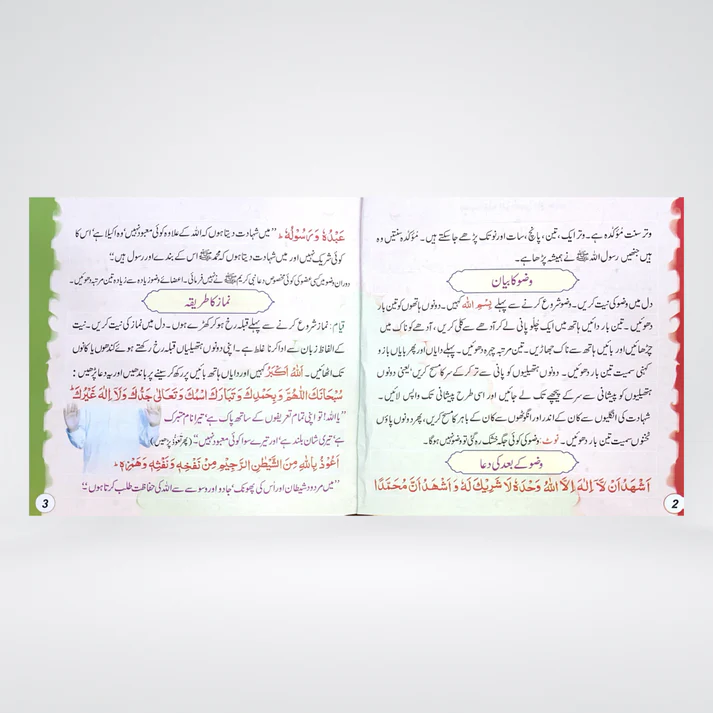 وتر سنت مؤکدہ ہے۔ وتر ایک، تین، پانچ، سات اور نو تک پڑھے جا سکتے ہیں۔ مؤکدہ سنتیں وہ
ہیں جنھیں رسول اللہ ﷺ نے ہمیشہ پڑھا ہے۔
وضو کا بیان
دل میں وضو کی نیت کریں۔ وضو شروع کرنے سے پہلے بِسْمِ اللّٰهِ کہیں۔ دونوں ہاتھوں کو تین بار
دھوئیں۔ تین بار دائیں ہاتھ میں ایک چُلّو پانی لے کر آدھے سے کلی کریں، آدھے کو ناک میں
چڑھائیں اور بائیں ہاتھ سے ناک جھاڑیں۔ تین مرتبہ چہرہ دھوئیں۔ پہلے دایاں اور پھر بایاں بازو
کہنی سمیت تین بار دھوئیں۔ دونوں ہتھیلیوں کو پانی سے تر کر کے سر کا مسح کریں، یعنی دونوں
ہتھیلیوں کو پیشانی سے سر کے پیچھے تک لے جائیں اور اسی طرح پیشانی تک واپس لائیں۔
شہادت کی انگلیوں سے کان کے اندر اور انگوٹھوں سے کان کے باہر کا مسح کریں، پھر دونوں پاؤں
ٹخنوں سمیت تین بار دھوئیں۔ نوٹ: وضو کی کوئی جگہ خشک رہ گئی تو وضو نہیں ہوگا۔
وضو کے بعد کی دعا
اَشْهَدُ اَنْ لَّآ اِلٰهَ اِلَّا اللّٰهُ وَحْدَهٗ لَا شَرِيْكَ لَهٗ وَ اَشْهَدُ اَنَّ مُحَمَّدًا
2
عَبْدُهٗ وَ رَسُوْلُهٗ ”میں شہادت دیتا ہوں کہ اللہ کے علاوہ کوئی معبود نہیں، وہ اکیلا ہے، اس کا
کوئی شریک نہیں اور میں شہادت دیتا ہوں کہ محمد ﷺ اس کے بندے اور رسول ہیں۔“
دوران وضو میں کسی عضو کی کوئی مخصوص دعا نبی کریم ﷺ نے نہیں فرمائی۔ اعضائے وضو زیادہ سے زیادہ تین مرتبہ دھوئیں۔
نماز کا طریقہ
قیام: نماز شروع کرنے سے پہلے قبلہ رخ ہو کر کھڑے ہوں۔ دل میں نماز کی نیت کریں۔ نیت
کے الفاظ زبان سے ادا کرنا غلط ہے۔ اپنی دونوں ہتھیلیاں قبلہ رخ رکھتے ہوئے کندھوں یا کانوں
تک اٹھائیں۔ اَللّٰهُ اَكْبَرُ کہیں اور دایاں ہاتھ بائیں پر رکھ کر سینے پر باندھیں اور یہ دعا پڑھیں:
سُبْحَانَكَ اللّٰهُمَّ وَ بِحَمْدِكَ وَ تَبَارَكَ اسْمُكَ وَ تَعَالٰى جَدُّكَ وَ لَآ اِلٰهَ غَيْرُكَ
”یا اللہ! تو اپنی تمام تعریفوں کے ساتھ پاک ہے، تیرا نام متبرک
ہے، تیری شان بلند ہے اور تیرے سوا کوئی معبود نہیں۔“ (پھر تعوّذ پڑھیں)
اَعُوْذُ بِاللّٰهِ مِنَ الشَّيْطٰنِ الرَّجِيْمِ مِنْ نَفْخِهٖ وَ نَفْثِهٖ وَ هَمْزِهٖ
”میں مردود شیطان اور اُس کی پھونک، جادو اور وسوسے سے اللہ کی حفاظت طلب کرتا ہوں۔“
3